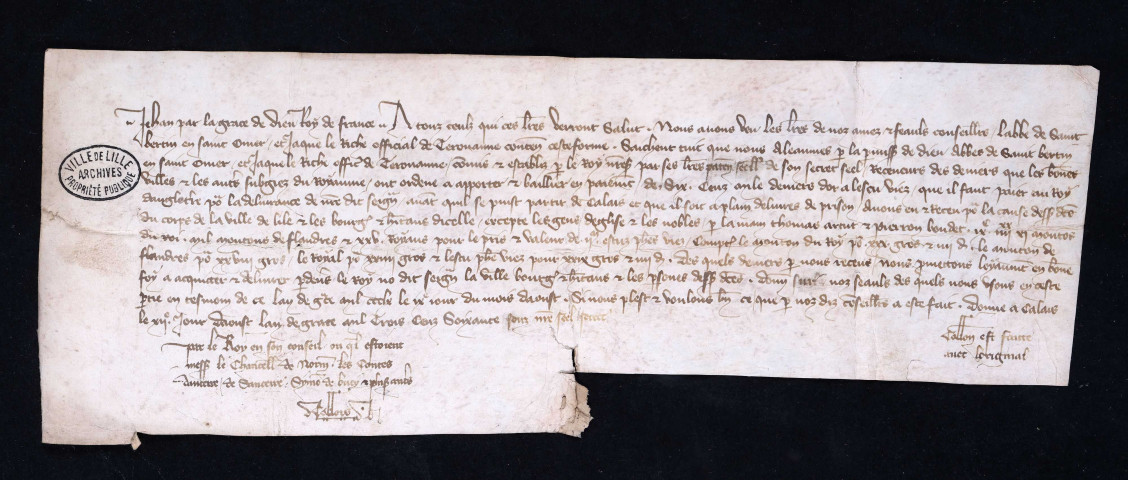 Jehan par la grace de dieu Roy de france A touz ceulz qui ces lres verront Salut. Nous avons veu les lres de noz amez & feaulx conseilliers labbe de Saint
bertin en saint Omer, et Jaque le Riche official de Terouanne contenans ceste forme. Sachent tuit que nous Aleaumes p la puiss de dieu Abbes de Saint bertin
en saint Omer, et Jaque le Riche offic de Terouanne, Comis & establis p le Roy nre s par ses lres de son secret seel, Receveurs des deniers que les bones
villes & les autres subgiez du Royaume, ont ordene a apporter & baillier en paiement de Dix. Cenz mile deniers dor a lescu viez, que il faut paier au Roy
dangleterre po la delivrance de nre dit seign, avant quil se puist partir de Calais et que il soit a plain delivres de prison, Avons eu & receu po la cause dess dte
du corps de la ville de lille & les bourg & hitans dicelle, excepte les gens deglise & les nobles, p la main thomas artut & pierron boudet,
du roi, mil moutons de flandres & xxv. Royaus pour le pris & valeur de escuz phes viez, Compte le mouton du Roy po xxx gros & iiij d. le mouton de
flandres po xxviij gros, le Royal po xxiiij gros & lescu phe viez pour gros & iiij d. des quels deniers p nous receus, nous prometons loyaument en bone
foy a acquitter & delivrer pdevers le Roy no dit seign la ville bourg & hitans & les psones dess dtes. donn souz noz seaulx des quels nous usons en ceste
ptie en tesmoin de ce lan de gce mil ccclx le jour du mois daoust. Si nous plest & voulons bn ce que p noz diz conseilliers a este fait. Donne a Calais
le xij. Jour daoust lan de grace mil Trois Cenz Soixante souz nre seel secret
Par le Roy en son conseil ou ql estoient
mess le Chancell de Norm. les Contes
dancerre & de Sancerre, Symon de bucy & plus autres
Collon est faite
avec loriginal
VILLE DE LILLE
ARCHIVES
PROPRIÉTÉ PUBLIQUE